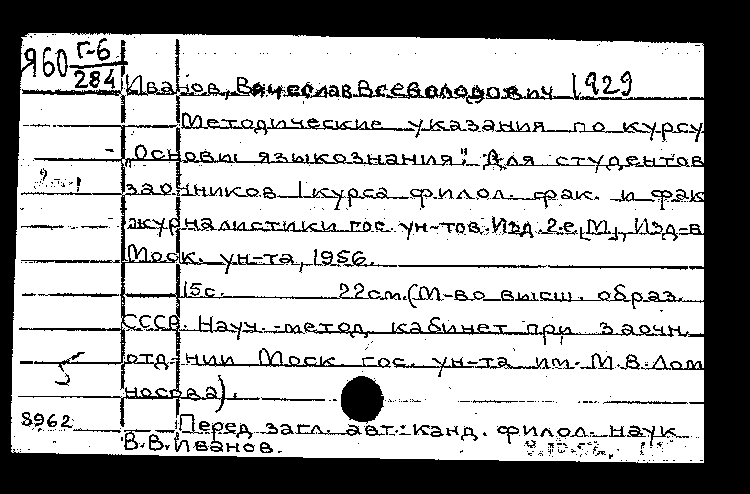 Я60 Г-6
284
Иванов, Вячеслав Всеволодович 1929
Методические указания по курсу
„Основы языкознания". Для студентов
заочников I курса филол. фак. и фак
журналистики гос. ун-тов. Изд. 2-е, [М.], Изд-в
Моск. ун-та, 1956.
15с. 22см. (М-во высш. образ.
СССР. Науч.-метод. кабинет при заочн.
отд-нии Моск гос. ун-та им. М.В. Лом
носова).
5
8962
Перед загл. авт.: канд. филол. наук
В.В. Иванов.